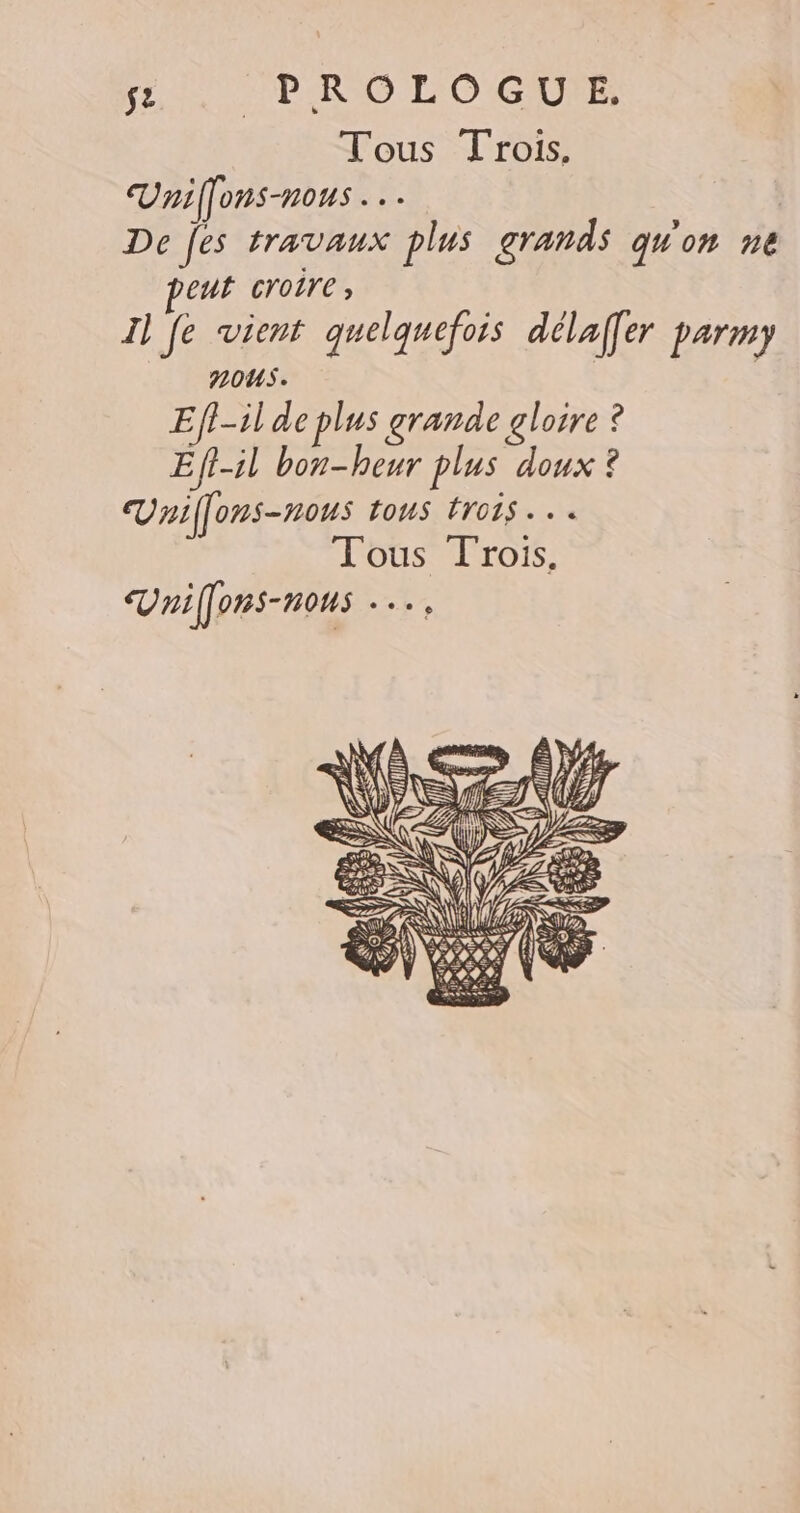 52 PROLOGUE.
Tous Trois.
Uniſſons-nous...
De ſes travaux plus grands qu'on ne
peut croire,
Il ſe vient quelquefois délaſſer parmy
nous.
Eſt-il de plus grande gloire ?
Eſt-il bon-heur plus doux ?
Uniſſons-nous tous trois...
Tous Trois.
Uniſſons-nous ....